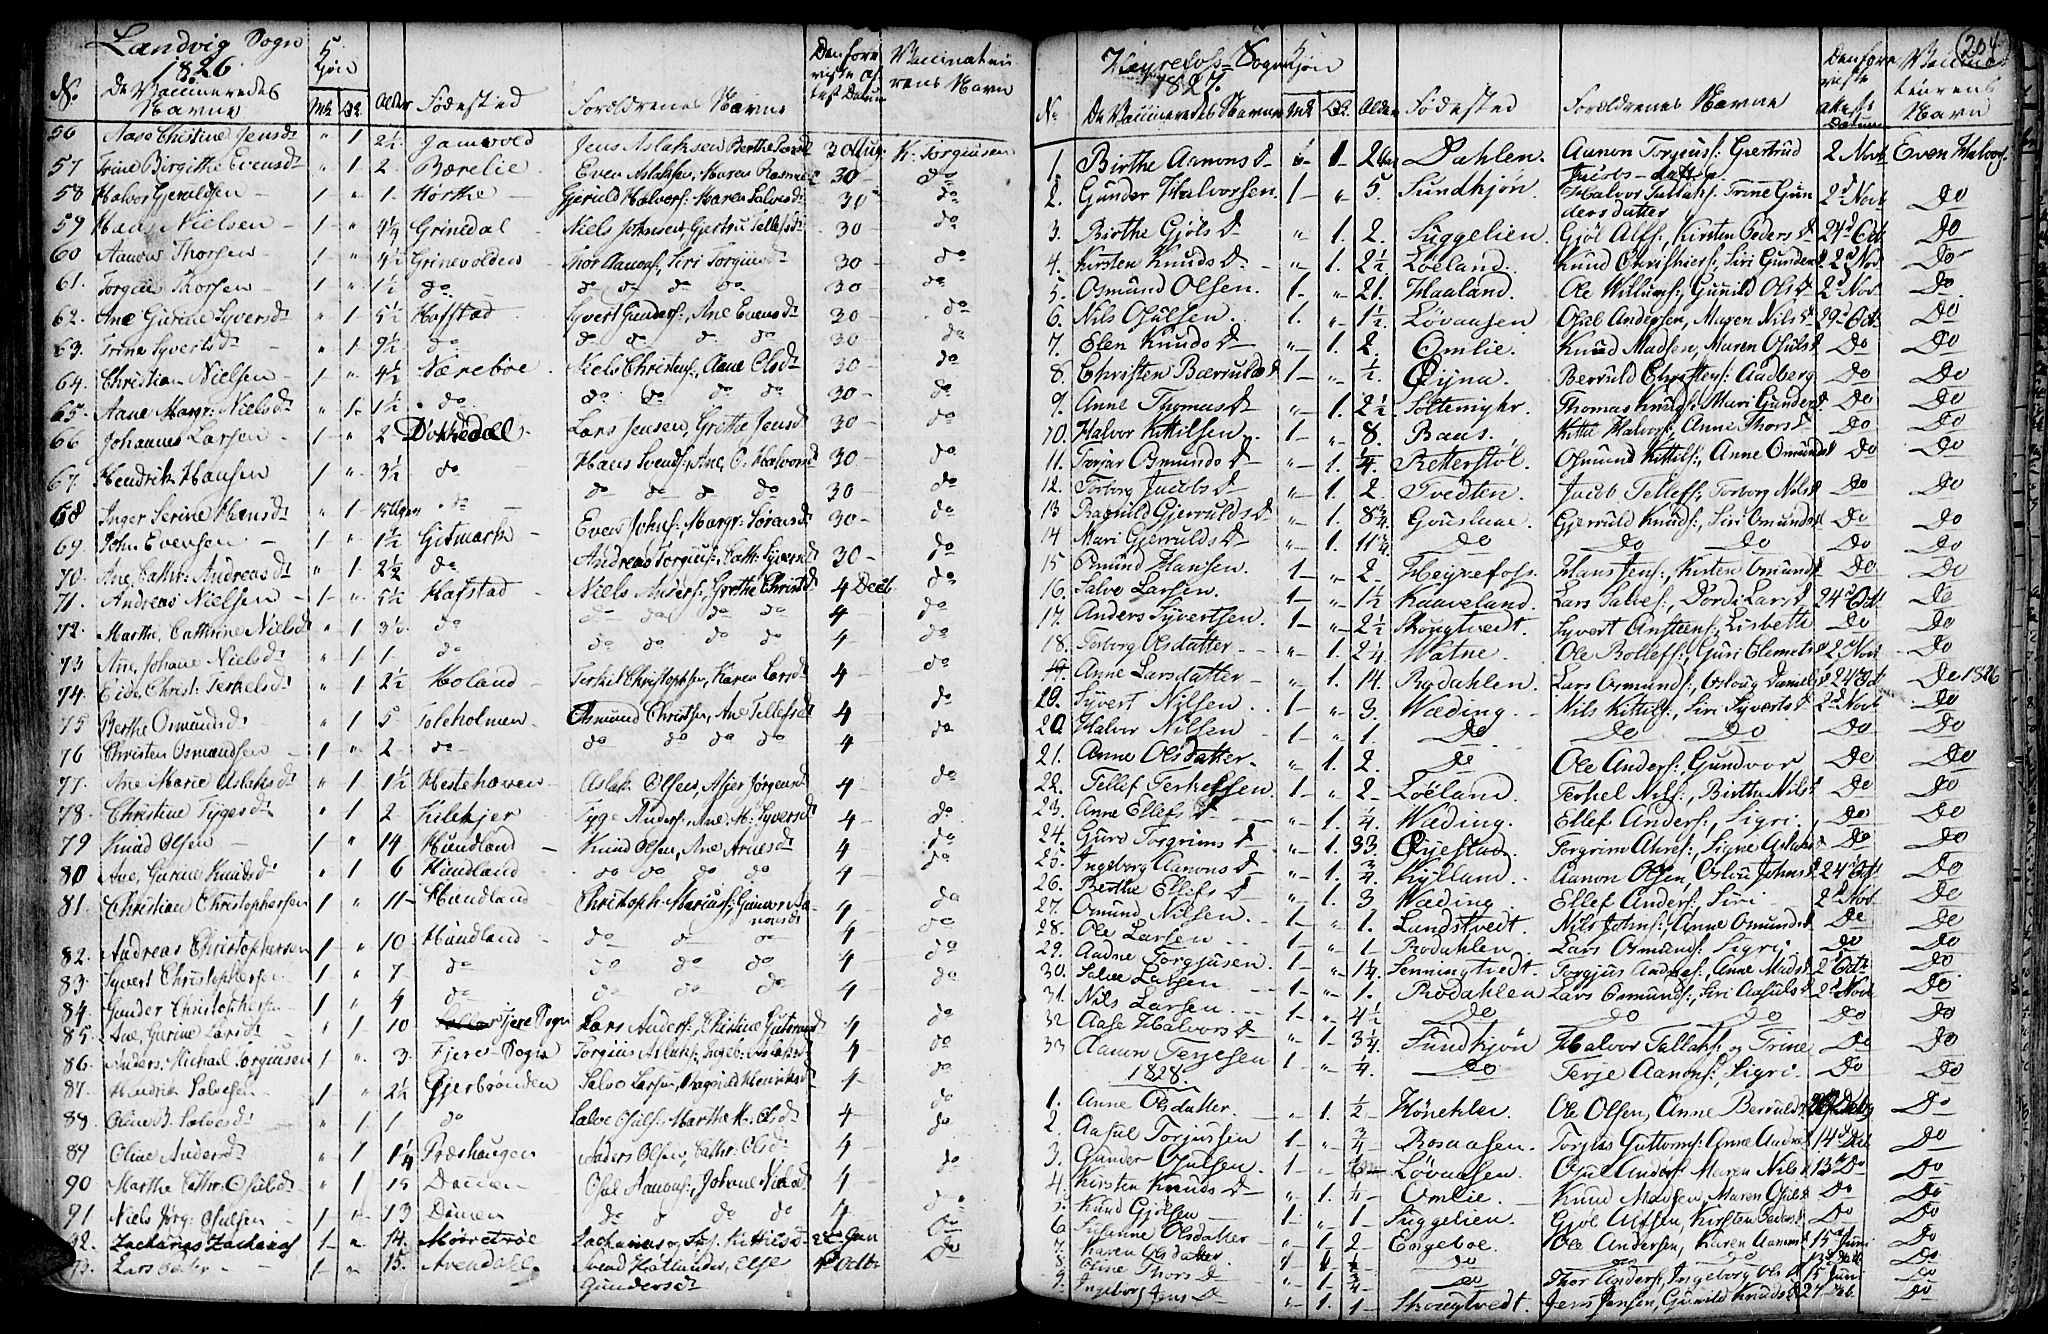 Landvig Sogn
1826
No. De Vaccineredes Navne Kjøn Mk Qk Alder Fødested Forældrenes Navne Den foreviste Attest Datum Vaccinateurens Navn
56 Aase Christine Jensd 1 2½ Jamvold Jens Aslaksen Berthe 30 Aug K. Torgiusen
57 Trine Birgithe Evensd 1 2 Bærelie Even Aslaksen, Maren 30 do
58 Halvor Gjeruldsen 1 1 Hørthe Gjeruld Halvors: Maren Salvesd 30 do
59 Hans Nielsen 1 4¼ Grinedal Niels Johnsen, Gjertru Tellefsd 30 do
60 Aanon Thorsen 1 4½ Grinevolden Thor Aanons, Siri Torgiusd 30 do
61. Torgiu Thorsen 1 1½ do do do do do 30 do
62. Ane Gurine Syversd 1 5½ Hafstad Syvert Gunders:, Ane Evensd 30 do
63. Trine Syvertsd 1 9½ do do do do do 30 do
64. Christian Nielsen 1 4½ Næreboe Niels Christens:, Aane Olsd 30 do
65. Aane Margr: Nielsd 1 1½ do do do do do 30 do
66 Johannes Larsen 1 2 Dokkedal Lars Jensen, Grethe Jensd 30 do
67. Hendrik Hansen 1 3½ do Hans Svends:, Ane O. Halvorsd 30 do
68 Inger Serine Hansd 1 do do do do do 30 do
69. John Evensen 1 1½ Gitmark Even Johns:, Margr: Sørensd 30 do
70. Ane, Cathr: Andreasd 1 2½ do Andreas Torgius:, Cath: Syversd 30 do
71. Andreas Nielsen 1 5½ Hafstad Niels Anders:, Grethe Christd 4 Decb do
72. Marthe, Cathrine Nielsd 1 3½ do do do do do 4 do
73 Ane, Johane Nielsd 1 1 do do do do do 4 do
74. Christ: Terkelsd 1 2½ Holand Terkel Christophsen, Karen Larsd 4 do
75 Berthe Osmundsd 1 5 Toleholmen Osmund Christens, Ane Tellefsd 4 do
76 Christen Osmundsen 1 2 do do do do do 4 do
77. Ane Marie Aslaksd 1 1½ Hestehaven Aslak Olsen, Asjer Jørgensd 4 do
78. Christine Tygesd 1 2 Kilekjer Tyge Anders:, Ane M: Syversd 4 do
79 Knud Olsen 1 14 Hundland Knud Olsen, Ane Arnesd 4 do
80 Ane, Gurine Knudsd 1 6 Hundland do do do do 4 do
81. Christian Christophersen 1 11 Hundland Christoph Marius:, Gunvor 4 do
82. Andreas Christophersen 1 10 Hundland do do do 4 do
83. Syvert Christophersen 1 7 do do do do 4 do
84. Gunder Christophersen 1 4 do do do do 4 do
85. Ane, Gurine Larsd 1 10 Fjere Sogn Lars Anders:, Christine 4 do
86. Anders, Michael Torgiusen 1 3 Fjere Sogn Torgius Aslaks:, Ingeb: Aslaksd 4 do
87. Hendrik Salvesen 1 2½ Gjerbrønden Salve Larsen, Ragnild Henriksd 4 do
88. Oline B. Salvesd 1 1 do Salve Osuls: Marthe K. Olsd 4 do
89 Oline Andersd 1 1¼ Præshaugen Anders Olsen, Cathr: Olsd 4 do
90 Marthe Cathr: Osulsd 1 15 Dømen Osul Aanons:, Johane Nielsd 4 do
91 Niels Jørg: Osulsen 1 13 Dømen do do do do 4 do
92. Zacharias Zacharias 1 14. Zacharias Do
93. Lars 1 15. Arendahl Svend Hotlunder, Else Gundersd Octb Do

204
Heyrefoss Sogn
1827.
No De Vaccineredes Navne Kjøn Mk Qk Alder Fødested Forældrenes Navne Den foreviste Attests Datum Vaccinateurens Navn
1. Birthe Aanons D 1 2 Dahlen. Aanon Torgius: Gjertrud Jacobsdatter 2 Nov Even Halvors
2. Gunder Halvorsen 1 5 Sundkjøn Halvor Tallaks: Trine Gundersdatter 2d Nov Do
3. Birthe Gjøls D 1. 2. Suggelien. Gjøl Alfs:, Kirsten Peders D 24d Oct Do
4. Kirsten Knuds D 1. 2½ Løeland. Knud Christhiers:, Siri Gunders 22d Nov Do
5. Osmund Olsen. 1. 21. Haaland. Ole Willums: Gunild Ols D 2d Nov Do.
6. Nils Osulsen. 1. 1½ Løvaasen Osul Andersen, Maren Nils D 29d Oct Do
7. Elen Knuds D 1. 2. Omlie. Knud Madsen, Maren Osuls D Do Do
8. Christen Bærrulds 1 ½. Øijna. Berruld Christens: Aadberg Do Do
9. Anne Thomas D 1. 2½ Soltemyhr. Thomas Knuds: Mari Gunders Do Do
10. Halvor Kittilsen. 1 8. Baas. Kittil Halvors: Anne Thors D Do Do
11. Torjar Osmunds D 1. ¼. Retterstøl. Osmund Kittils:, Anne Osmunds Do Do
12. Torborg Jacobs D 1. 2. Tvedten. Jacob Tellefs:, Torborg Nils D Do Do
13 Ragnild Gjerrulds D 1. 8¾. Gouslaae. Gjerruld Knuds:, Siri Osmunds Do Do
14 Mari Gjerrulds D 1. 11¼. Do Do Do Do Do
15 Osmund Hansen. 1 2. Heyrefoss. Hans Jens:, Kirsten Osmunds Do Do
16. Salve Larsen. 1 1½ Kaaveland. Lars Salves:, Dordi Lars D 24d Oct Do
17. Anders Syvertsen. 1 2½ Skougtvedt. Syvert Anstens: Lisbette Do Do
18. Torborg Olsdatter 1. 2¼ Watne. Ole Rollefs:, Guri Clemets D 2d Nov Do
19. Anne Larsdatter 1. 14. Rødahlen. Lars Osmunds:, Osloug Daniels D 24d Oct Do 1826
19. Syvert Nilsen 1 3. Wæding. Nils Kittils:, Siri Syverts D 2d Nov Do
20. Halvor Nilsen 1 1 Do Do Do Do Do
21. Anne Olsdatter. 1. 2. Do Ole Anders: Gundvor Do Do
22. Tellef Terkelsen. 1 2 Løeland. Terkel Nils:, Birthe Nils D Do Do
23. Anne Ellefs D 1. ¼ Wæding. Ellef Anders:, Sigri. Do Do
24. Guro Torgrims D 1. 33 Øyestad. Torgrim Ahres: Signe Aslaks D Do Do
25. Ingeborg Aanons D 1. ¾. Kylland. Aanon Olsen, Oslou Johns D 24d Oct Do
26. Berthe Ellefs D 1. 3 Wæding Ellef Anders: Siri 2d Nov Do
27. Osmund Nilsen. 1 1. Lundstvedt. Nils Johns: Anne Osmunds D Do Do
28. Ole Larsen 1 1 Rødahlen Lars Osmunds: Sigri Do Do
29. Aadne Torgjusen. 1 14. Senningtvedt. Torgjus Andnes: Anne Mads D 2d Oct Do
30. Salve Larsen 1 1. Rødahlen Lars Osmunds:, Siri Aasuls D 2d Nov Do
31. Nils Larsen 1 4½ Do Do Do Do Do
32 Aase Halvors D 1. 3¼ Sundkjøn Halvor Tallaks: og Trine Do Do
33 Aanon Terjesen 1 ¼. Do Terje Aanons:, Sigri. Do Do
1828.
1. Anne Olsdatter. 1. ½ Hønehler. Ole Olsen, Anne Berrulds D Do
2. Aasul Torjussen 1 ¾ Rosaasen. Torjus Guttorms: Anne Aadnes 14d Do
3. Gunder Osulsen. 1 Løvaasen. Osul Anders: Maren Nils D 13d Do Do
4. Kirsten Knuds D 1. ¼ Omlie. Knud Madsen, Maren Osuls Do Do
5. Knud Gjølsen 1 1 Suggelien. Gjøl Alfsen, Kirsten Peders D Do Do
6. Susanne Olsdatter 1. 2 Engeboe. Ole Andersen, Karen Aanons D 15d Juni Do
7. Karen Olsdatter 1. Do Do Do Do
8. Oline Thors D 1. ¾ Do Thor Anders: Ingeborg Ols D 15 Juni Do
9. Ingeborg Jens D 1. 1 Skougtvedt. Jens Jensen, Gunild Knuds D 27 Do